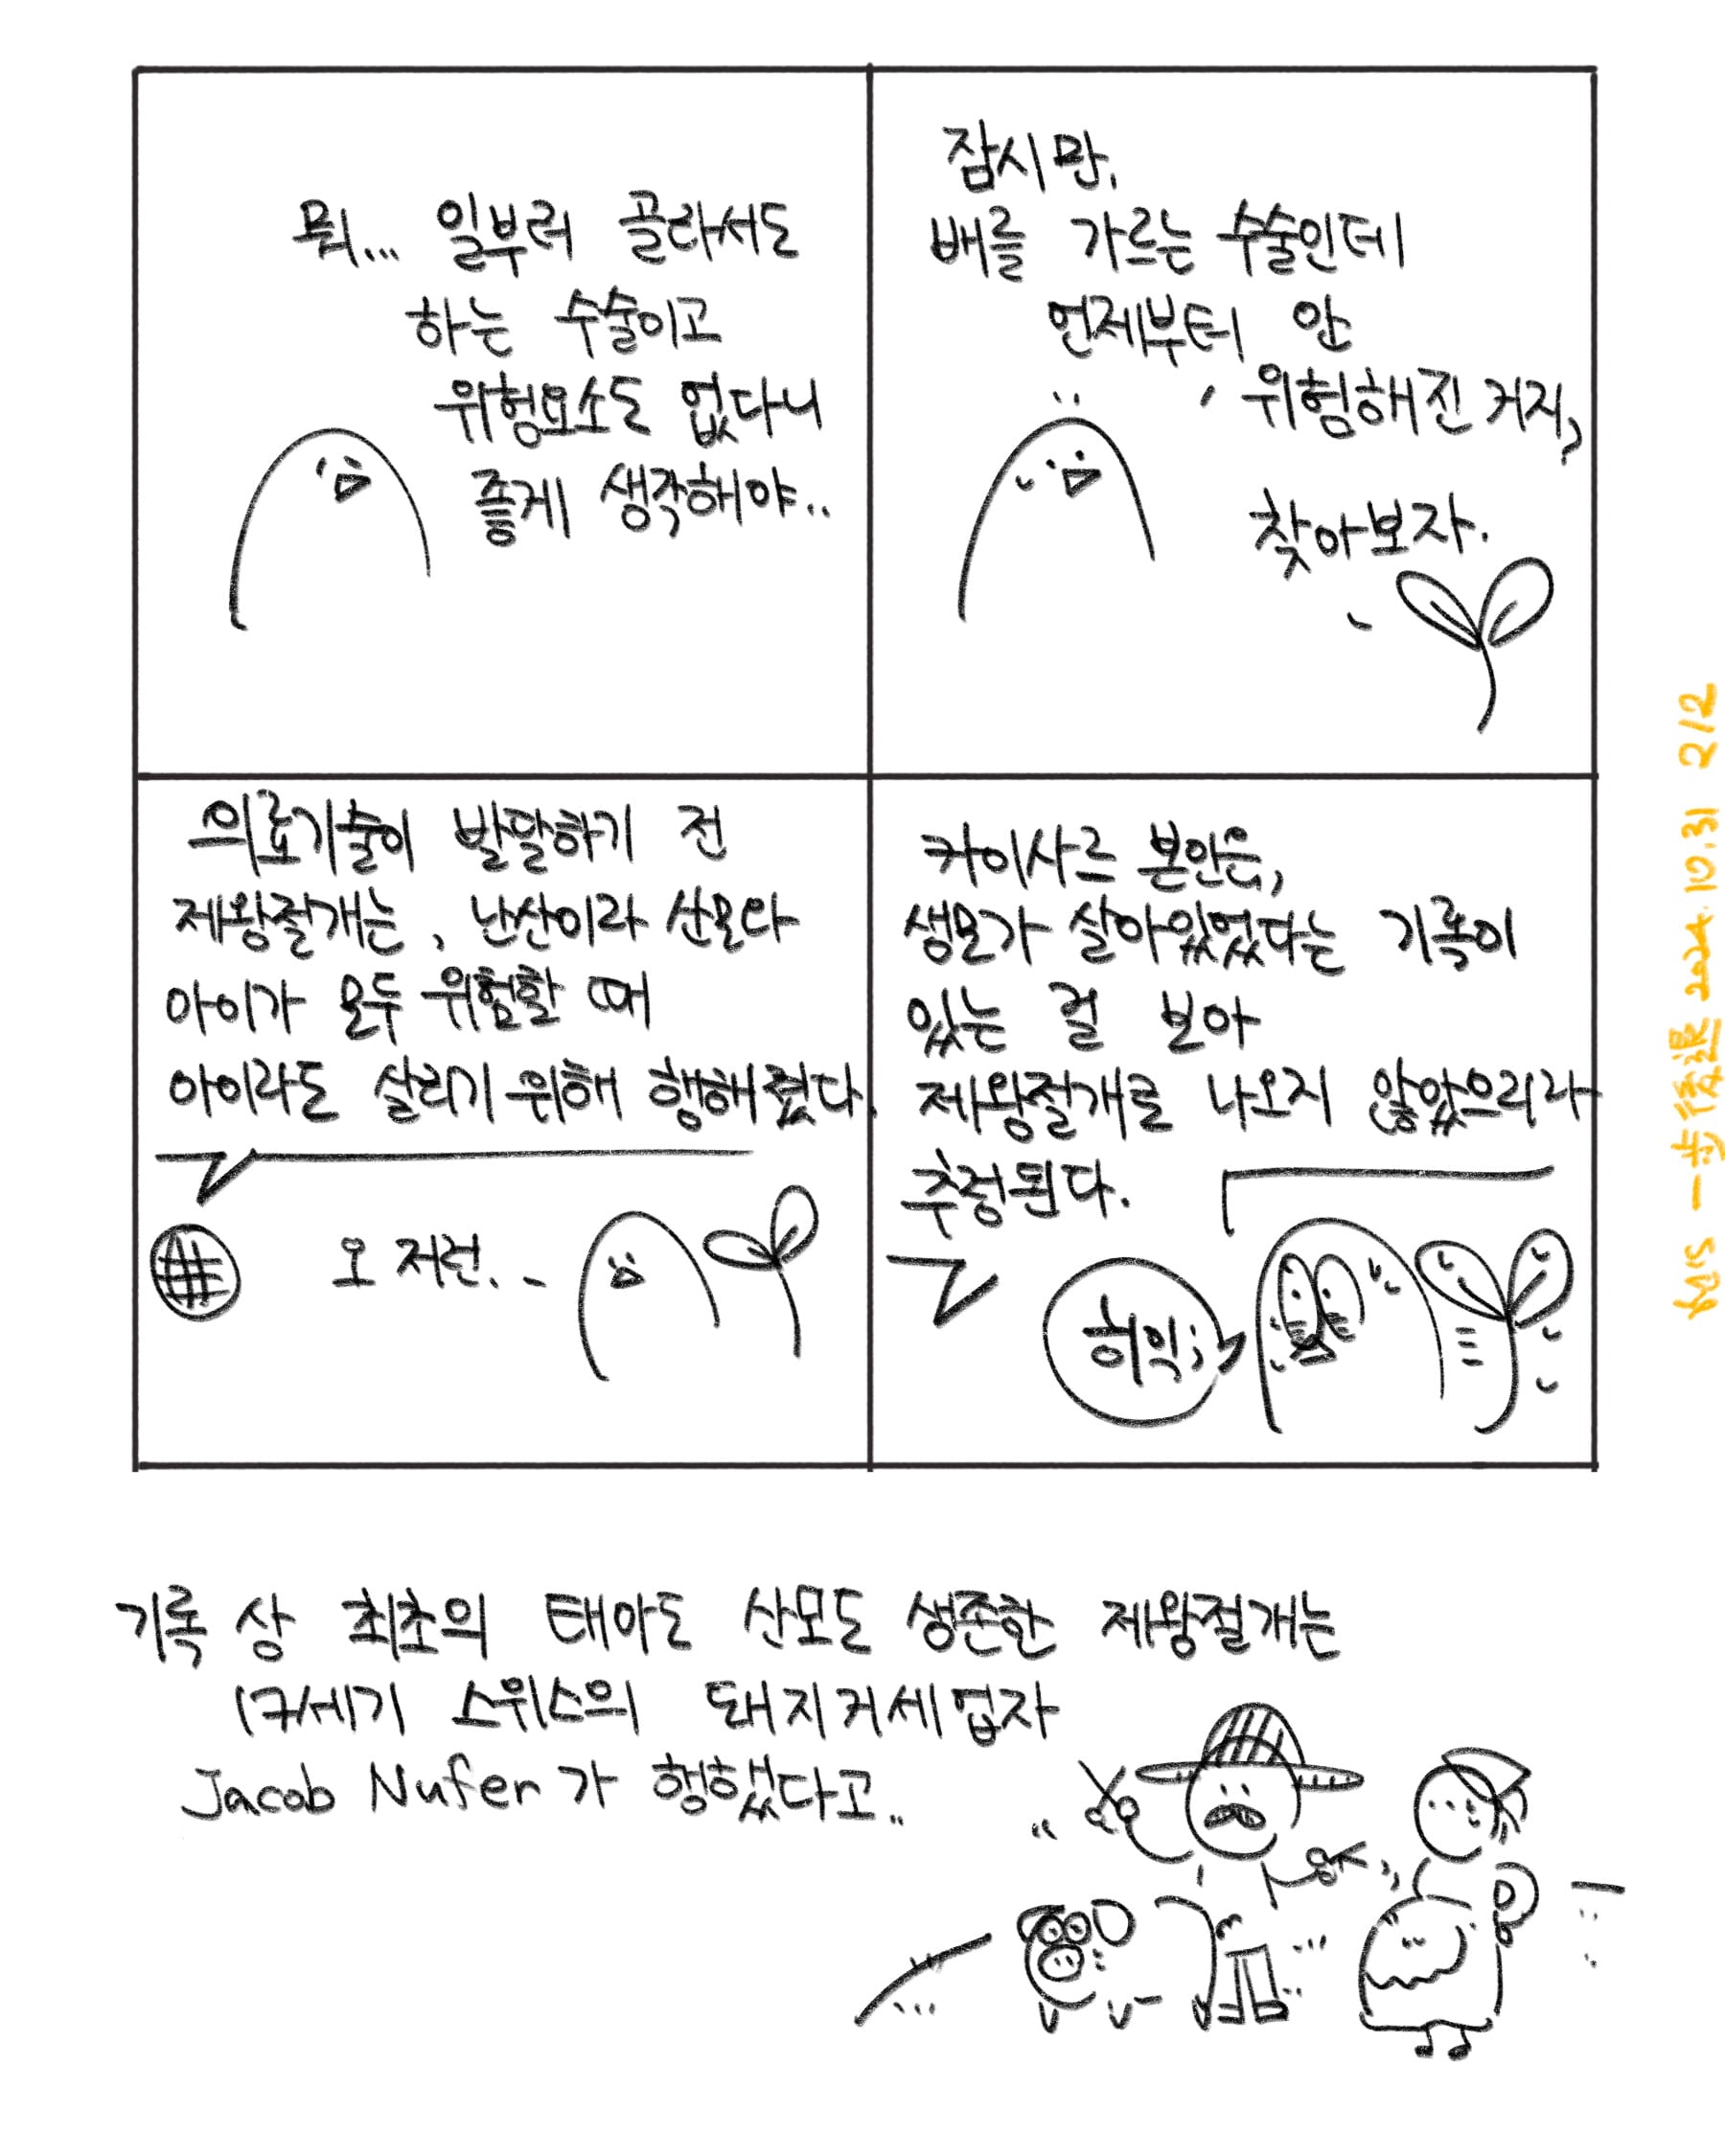 뭐... 일부러 골라서도
하는 수술이고
위험요소도 없다니
좋게 생각해야..
잠시만.
배를 가르는 수술인데
언제부터 안
위험해진 거지,
찾아보자.
의료기술이 발달하기 전
제왕절개는, 난산이라 산모와
아이가 모두 위험할 때
아이라도 살리기 위해 행해졌다.
오 저런..
카이사르 본인은,
생모가 살아있었다는 기록이
있는 걸 보아
제왕절개로 나오지 않았으리라
추정된다.
허익;
기록 상 최초의 태아도 산모도 생존한 제왕절개는
17세기 스위스의 돼지거세업자
Jacob Nufer가 행했다고..
一步後退 2024.10.31 2/2